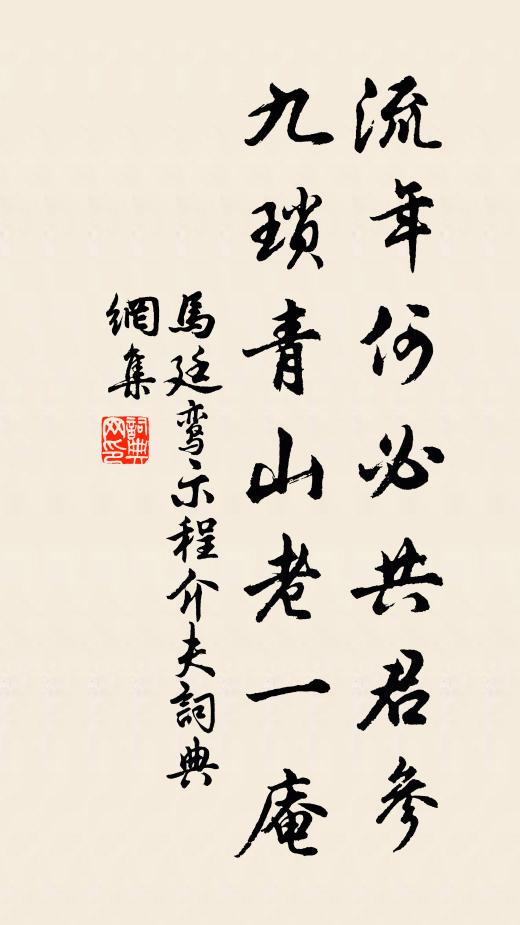 流年何必共君參
九瑣青山老一庵
馬廷鸾示程介夫詞典
網集
詞典
网印